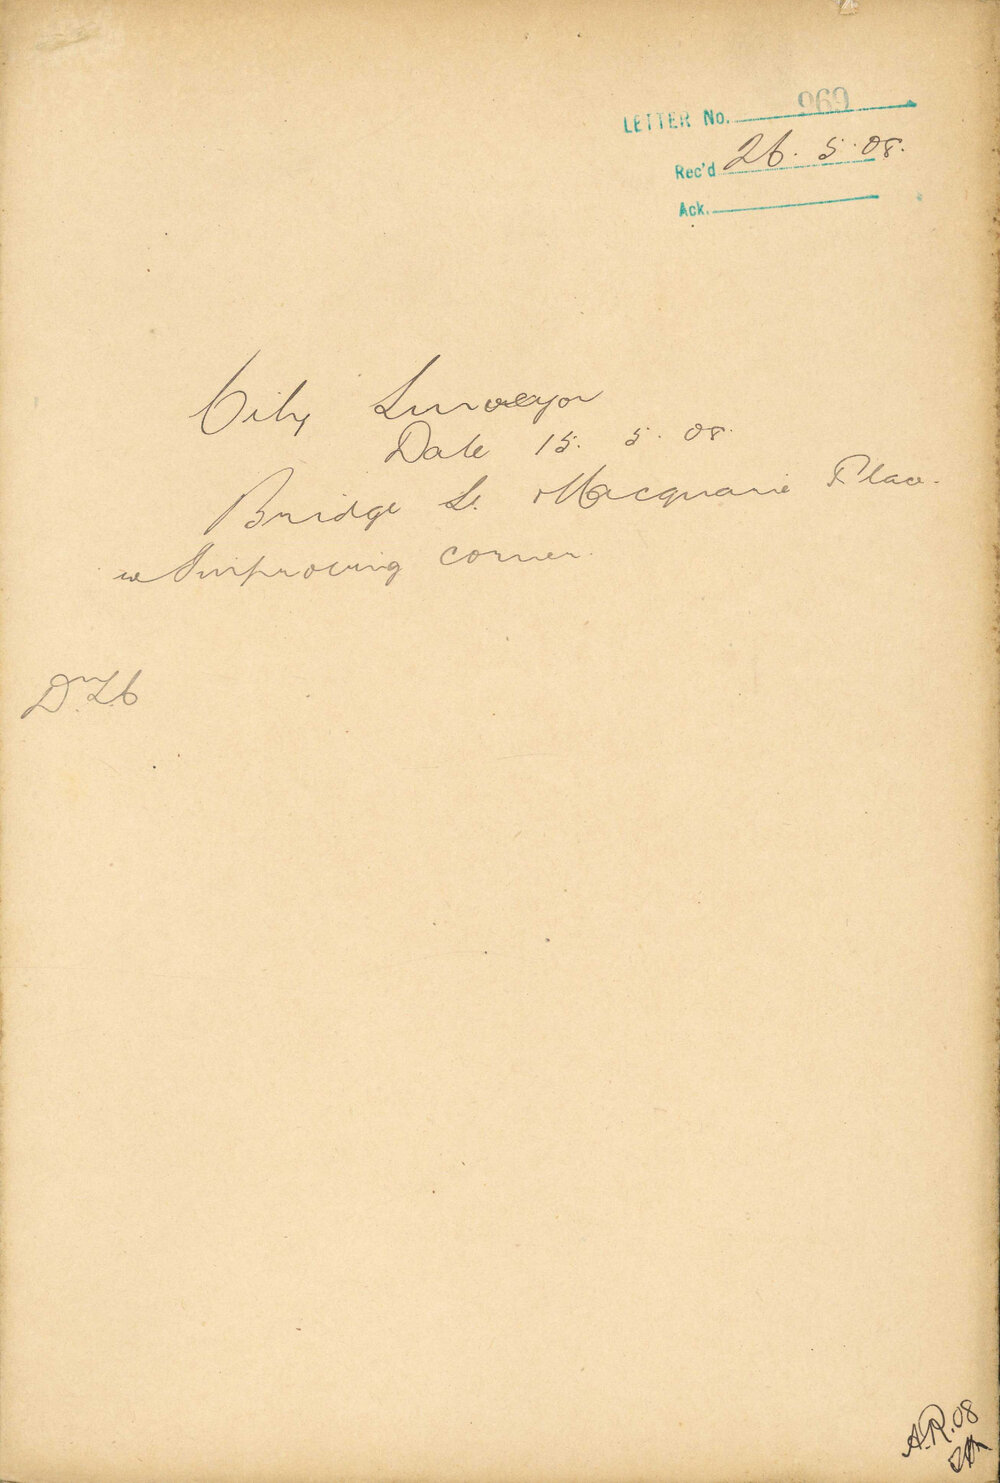 LETTER No. 969
Rec'd 26. 5. 08.
Ack.
City Surveyor
Date 15. 5. 08.
Bridge St. Macquarie Place.
re Improving corner.
A.R. 08